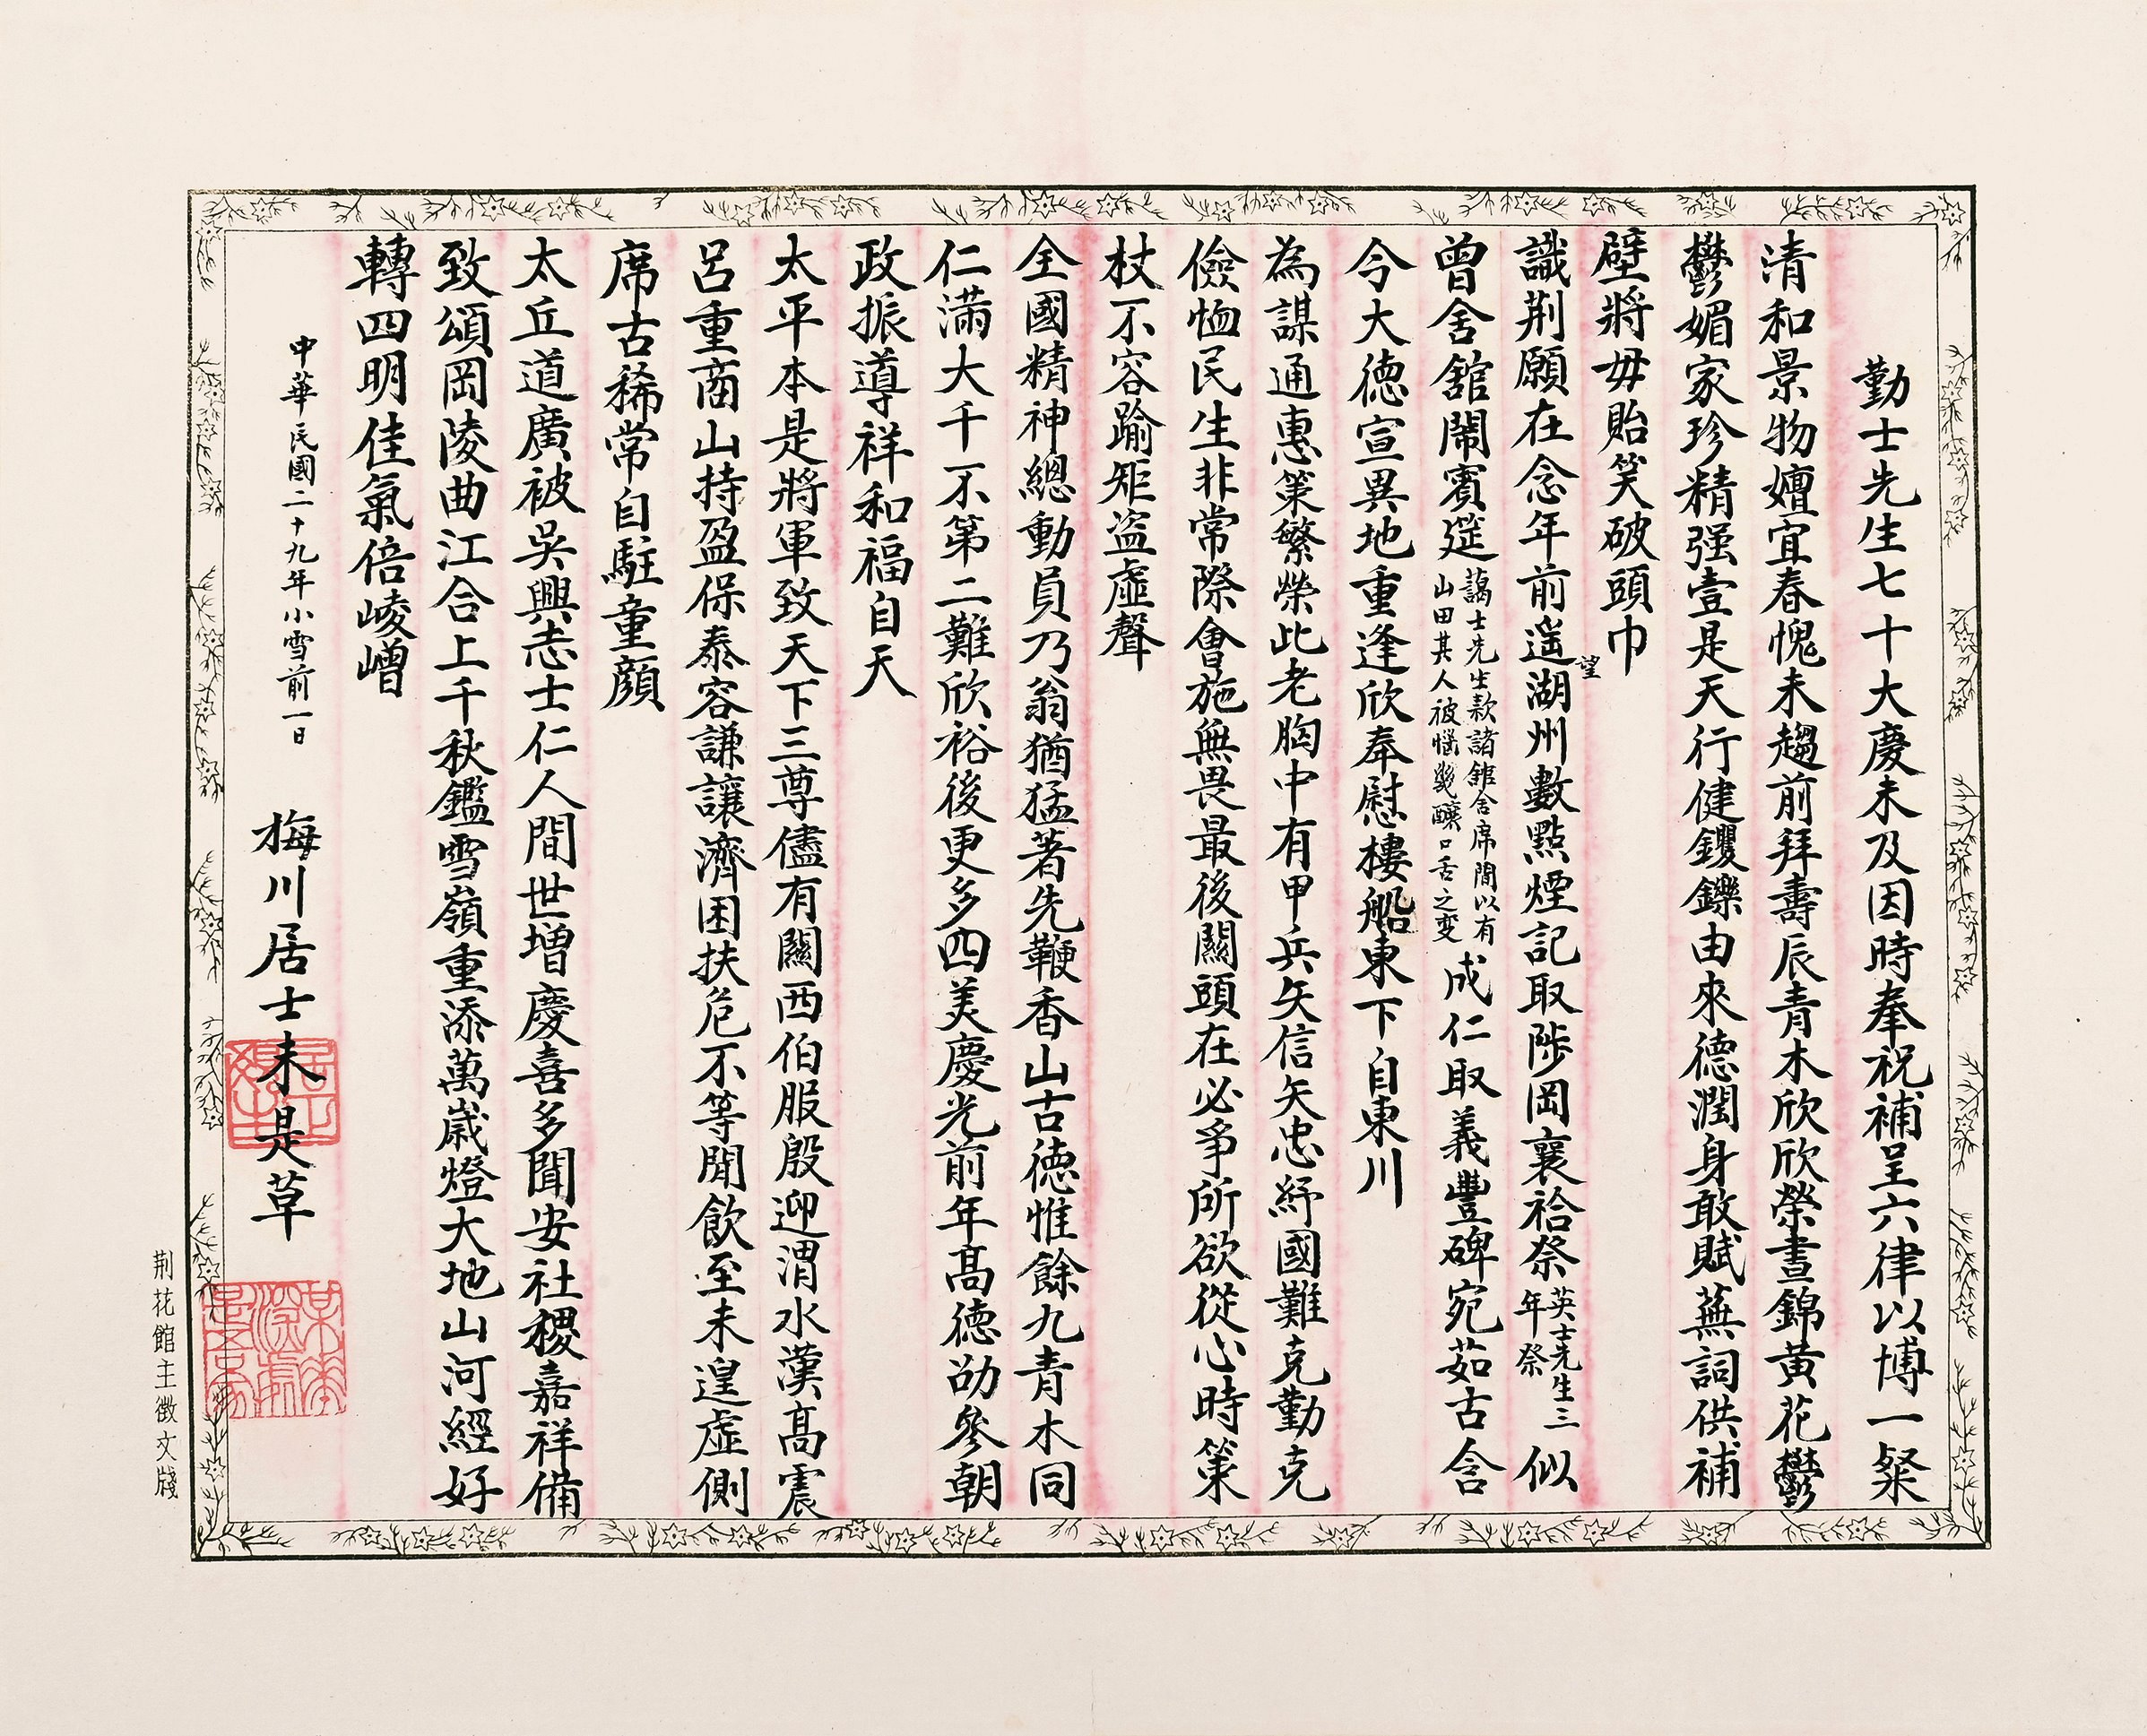 勤士先生七十大慶未及因時奉祝補呈六律以博一粲
清和景物嬗宜春愧未趨前拜壽辰青木欣欣榮晝錦黃花鬱
鬱媚家珍精强壹是天行健鑺鑠由來德潤身敢賦蕪詞供補
壁將毋貽笑破頭巾
識荆願在念年前遥望湖州數點煙記取陟岡襄祫祭英士先生三年祭似
曾舍舘鬧賓筵藹士先生款諸舘舍席間以有山田其人被慍幾釀口舌之变成仁取義豐碑宛茹古含
今大德宣異地重逢欣奉慰樓船東下自東川
為謀通惠策繁榮此老胸中有甲兵矢信矢忠紓國難克勤克
儉恤民生非常際會施無畏最後關頭在必爭所欲從心時策
杖不容踰矩盜虛聲
全國精神總動員乃翁猶猛著先鞭香山古德惟餘九青木同
仁滿大千不第二難欣裕後更多四美慶光前年高德劭參朝
政振導祥和福自天
太平本是將軍致天下三尊儘有關西伯服殷迎渭水漢高震
呂重商山持盈保泰容謙讓濟困扶危不等閒飲至未遑虛側
席古稀常自駐童顏
太丘道廣被吳興志士仁人間世增慶喜多聞安社稷嘉祥備
致頌岡陵曲江合上千秋鑑雪嶺重添萬歲燈大地山河經好
轉四明佳氣倍崚嶒
中華民國二十九年小雪前一日 梅川居士未是草
荆花館主徵文牋